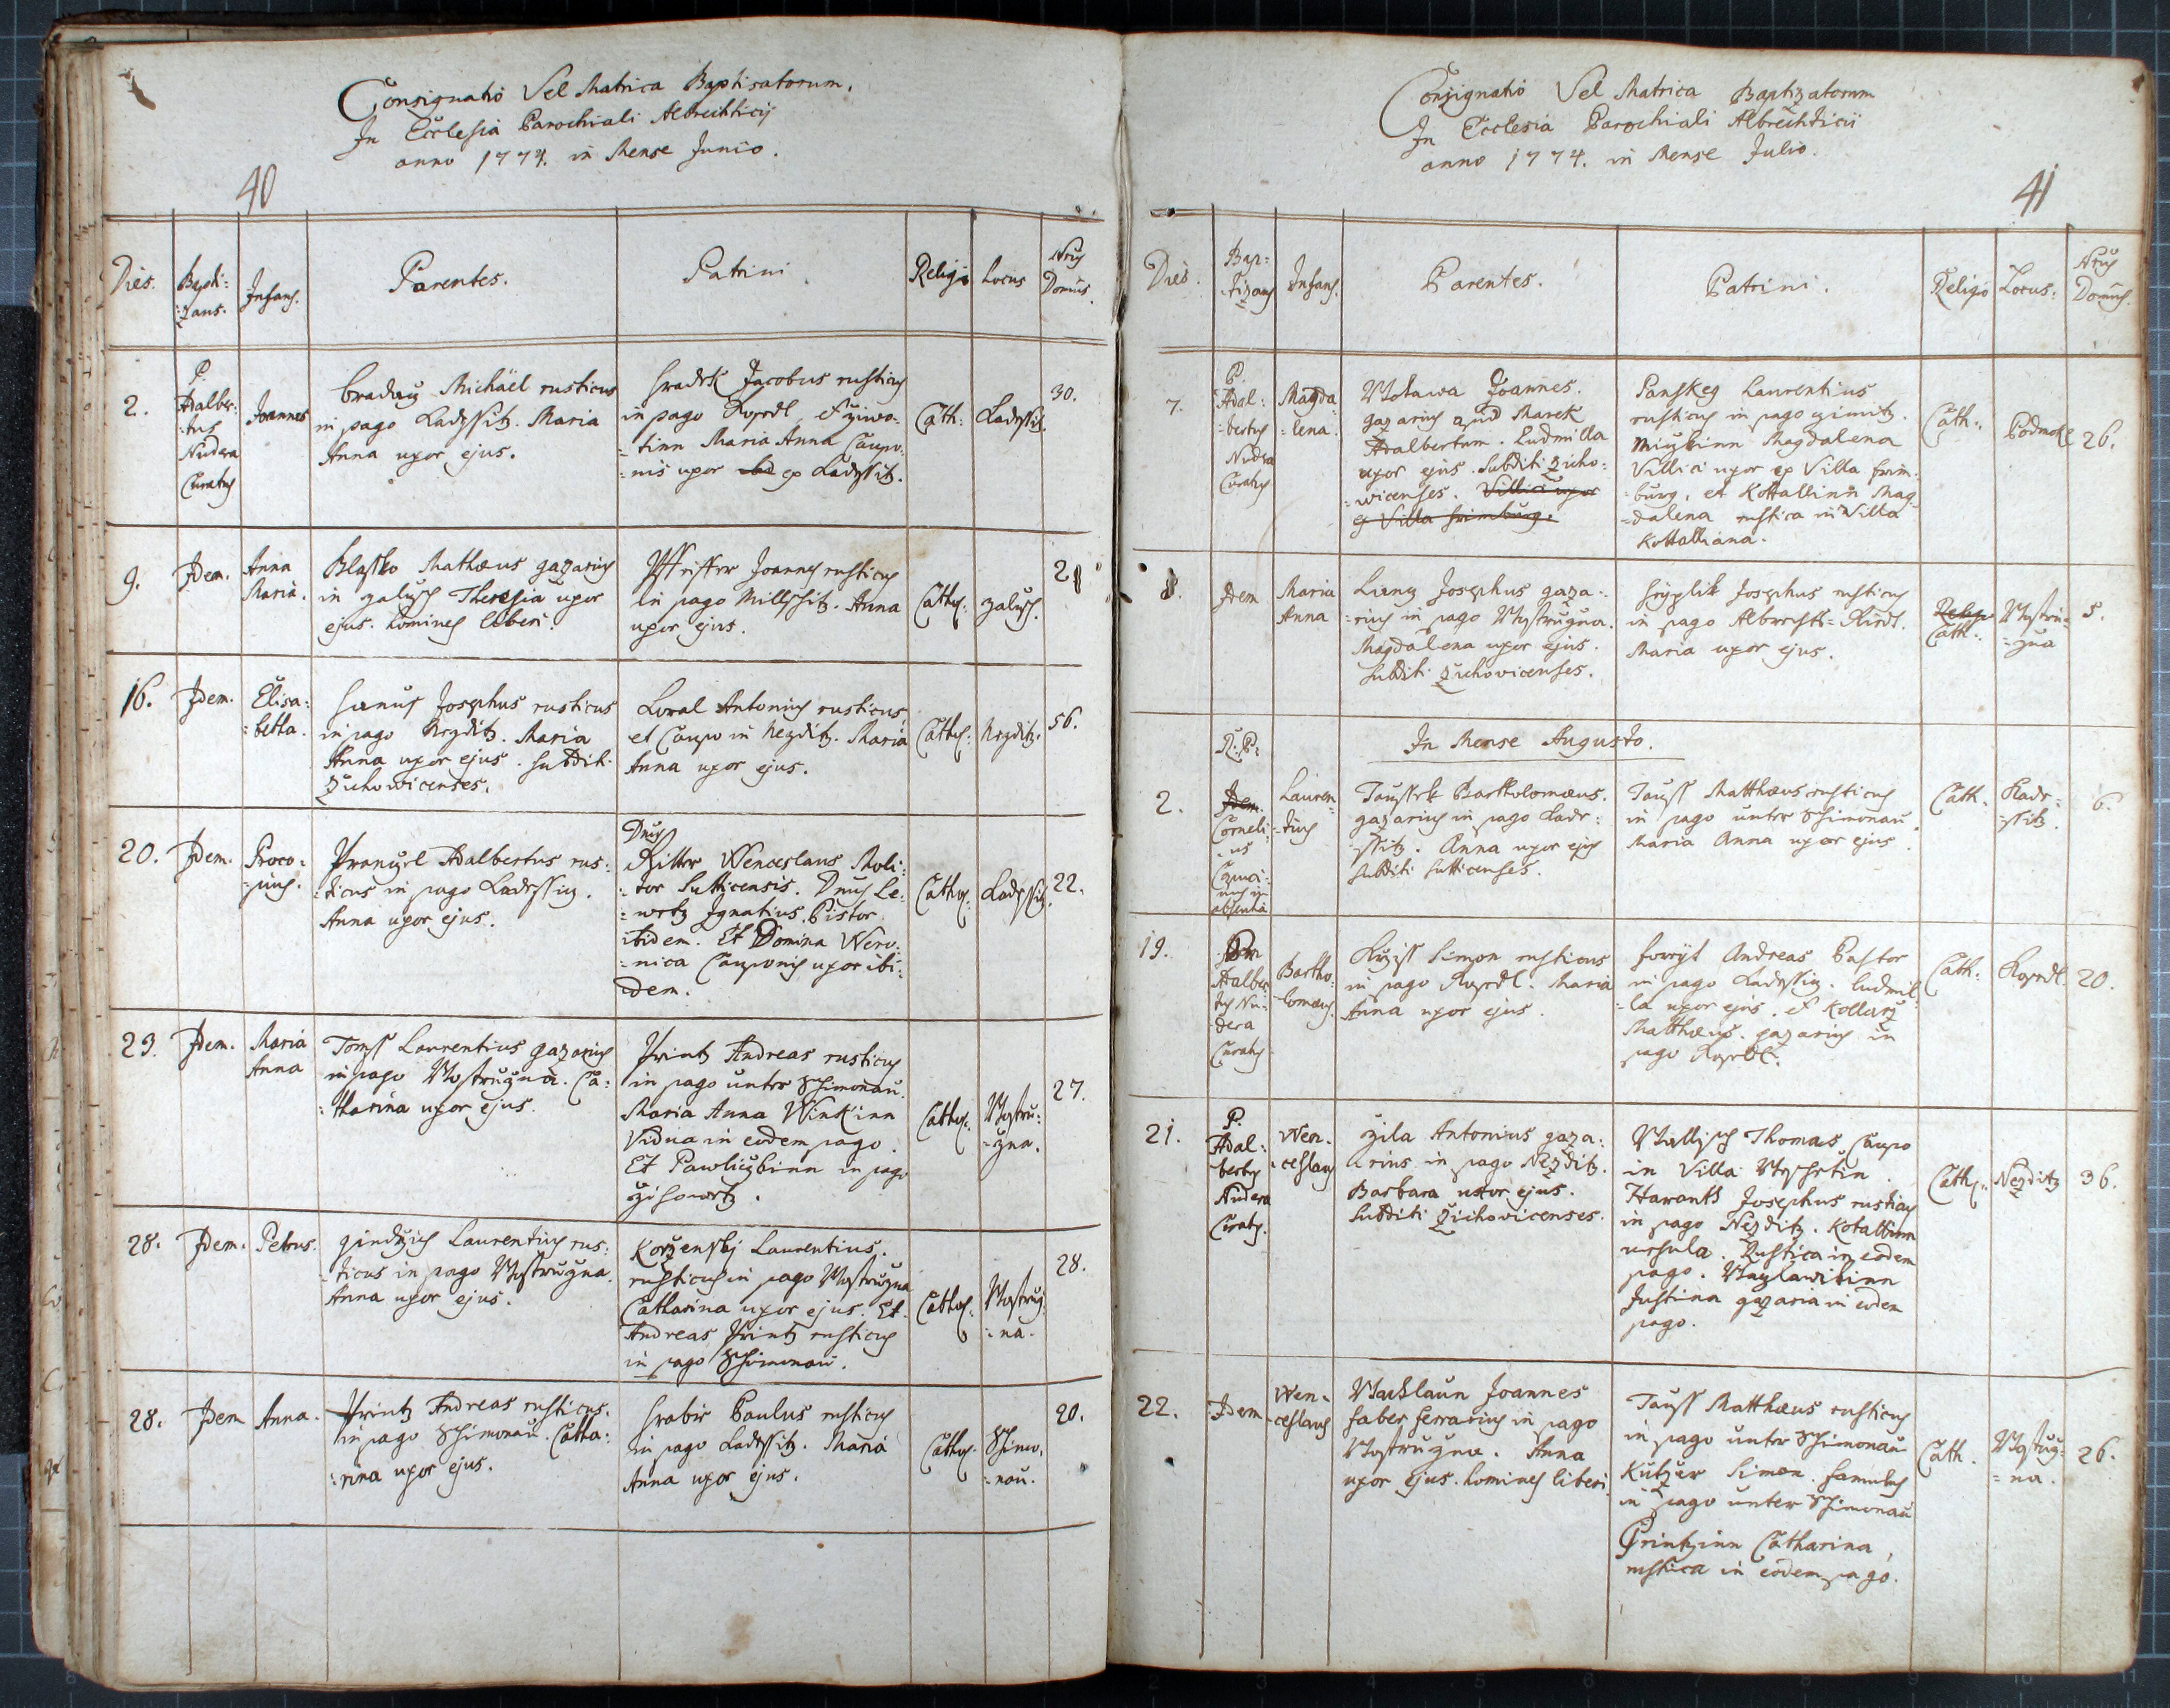 Consignatio Vel Matrica Baptisatorum.
In Ecclesia Parochiali Albrechticij
anno 1774. in Mense Junio.
40
Dies.
Bapti:
:zans.
Infans.
Parentes.
Patrini
Religio
Locus
Nrus
Domus.
2.
P.
Adalber:
:tus
Nudera
Curatus
Joannes
Michäel rusticus
in pago Ladessitz. Maria
Anna uxor ejus.
Hradek Jacobus rusticus
in pago Rozedl, et Ziwo:
:tinn Maria Anna Caupo:
:nis uxor ex Ladessitz.
Cath:
Ladessitz.
30.
9.
Idem.
Anna
Maria.
Blassko Mathæus gazarius
in zalusch Theresia uxor
ejus. homines liberi.
Joannes rusticus
in pago Millschitz. Anna
uxor ejus.
Cathol:
zalusch.
16.
Idem.
Elisa:
:betha.
Hanus Josephus rusticus
in pago Nezditz. Maria
Anna uxor ejus. Subditi
Zichowicenses.
Loral Antonius rusticus
et Caupo in Nezditz. Maria
Anna uxor ejus.
Cathol:
Nezditz.
56.
20.
Idem.
Proco:
:pius.
Adalbertus rus:
:ticus in pago Ladessitz.
Anna uxor ejus.
Dnus
Ritter Wenceslaus Moli:
:tor Sutticensis. Dnus Le:
:wetz Ignatius Pistor
ibidem. Et Domina Wero:
:nica Cauponis uxor ibi:
dem.
Cathol:
Ladessitz.
22.
23.
Idem.
Maria
Anna
Tomss Laurentius gazarius
in pago Wostružna. Ca:
:tharina uxor ejus.
Printz Andreas rusticus
in pago unter Schimonau.
Maria Anna Winkinn
Vidua in eodem pago.
Et Pawliczkinn in pago
Cathol:
Wostru:
:zna.
27.
28.
Idem.
Petrus.
Jindrzich Laurentius rus:
:ticus in pago Wostružna.
Anna uxor ejus.
Korzensky Laurentius.
rusticus in pago Wostružna
Catharina uxor ejus. Et
Andreas Printz rusticus
in pago Schimonau.
Cathol:
Wostruz:
:na.
28.
28.
Idem
Anna.
Printz Andreas rusticus.
in pago Schimonau. Catha:
:rina uxor ejus.
Hrabie Paulus rusticus
in pago Ladessitz. Maria
Anna uxor ejus.
Cathol.
Schimo:
:nau.
20.
Consignatio Vel Matrica Baptizatorum
In Ecclesia Parochiali Albrechticii
anno 1774. in Mense Julio.
41
Dies.
Bap:
:tizans
Infans.
Parentes.
Patrini.
Religio
Locus:
Nrus
Domus.
7.
P.
Adal:
:bertus
Nudera
Curatus
Magda
:lena.
Wotawa Joannes.
gazarius apud Marek
Adalbertum. Ludmilla
uxor ejus. Subditi Zicho:
:wicenses. Villici uxor
ex Villa Heimburg.
Panskeg Laurentius
rusticus in pago
Magdalena
Villici uxor ex Villa Heim:
:burg, et Kottallinn Mag:
:dalena rustica in Villa
Kottalliana.
Cath:
Podmokl
26.
8.
Idem
Maria
Anna
Lang Josephus gaza:
:rius in pago Wostružna.
Magdalena uxor ejus.
Subditi Zichovicenses.
Josephus rusticus
in pago Albrechts=Riedl.
Maria uxor ejus.
Religio
Cath:
Wostru:
:zna
5.
In Mense Augusto.
2.
R. P.
Idem.
Corneli:
:us
Capuci:
nus in
absentia
Lauren:
:tius
Taussek Bartholomæus.
gazarius in pago Lade:
:ssitz. Anna uxor ejus
Subditi Sutticenses.
Tauss Matthæus rusticus
in pago unter Schimonau
Maria Anna uxor ejus.
Cath.
Lade:
:ssitz.
6.
19.
Adalber
tus Nu:
:dera
Curatus
Bartho:
:lomæus.
Simon rusticus
in pago Rozedl. Maria
Anna uxor ejus.
Andreas Pastor
in pago Ladessitz. Ludmil:
:la uxor ejus. et Kollarz
Matthæus. gazarius in
pago Rozedl.
Cath:
Rozedl.
20.
21.
P.
Adal:
bertus
Nudera
Curatus.
Wen:
:ceslaus
Zila Antonius gaza:
:rius in pago Nezditz.
Barbara uxor ejus.
Subditi Zichovicenses.
Thomas Caupo
in Villa
Harantt Josephus rusticus
in pago Nezditz. Kotallinn
ursula. Rustica in eodem
pago.
Justina gazaria in eodem
pago.
Cath:
Nezditz
36.
22.
Idem
Wen:
:ceslaus
Joannes
faber ferrarius in pago
Wostružna. Anna
uxor ejus. homines liberi.
Tauss Matthæus rusticus
in pago unter Schimonau
Simon. famulus
in pago unter Schimonau
Printzinn Catharina,
rustica in eodem pago.
Cath.
Wostuž:
:na.
26.